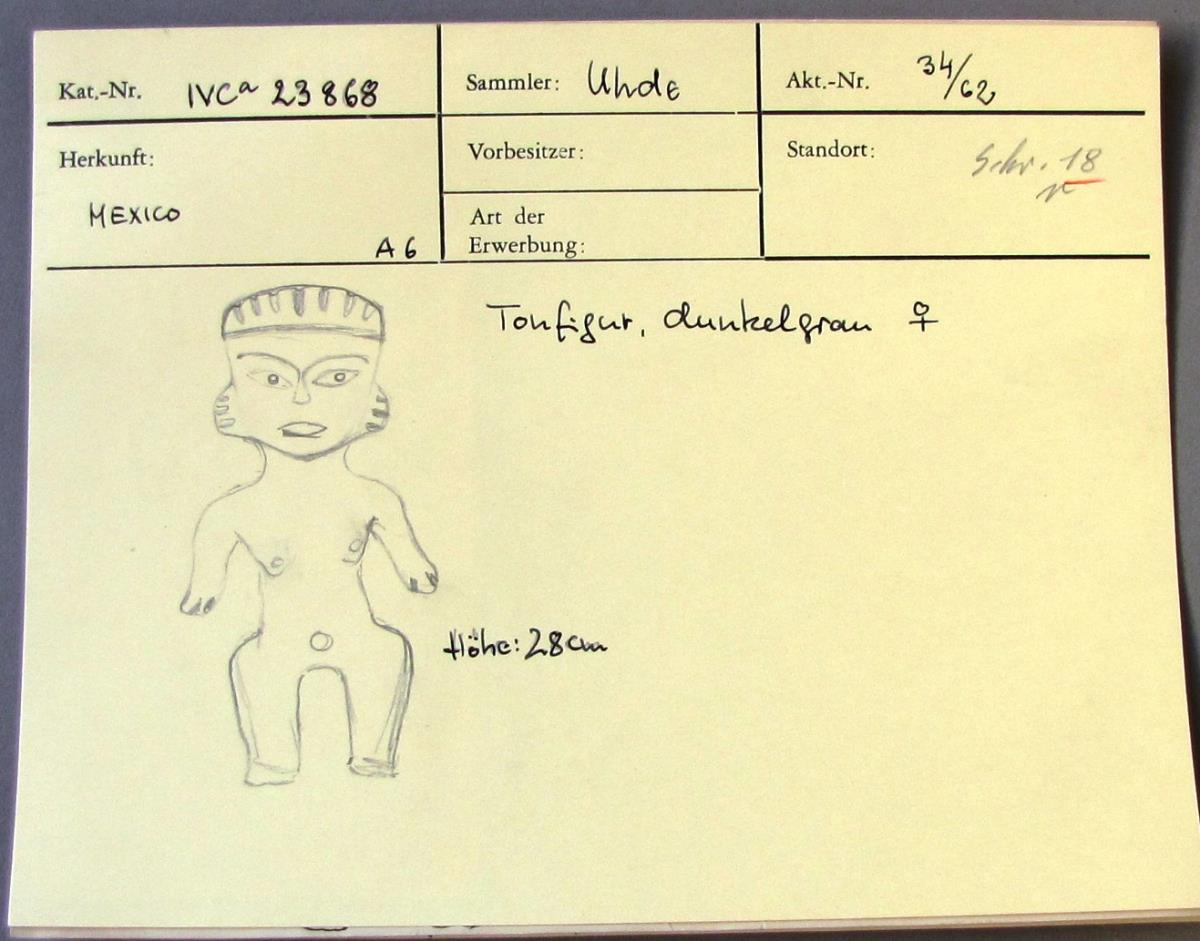 Kat.-Nr. IVCa 23868
Sammler: Uhde
Akt.-Nr. 34/62
Herkunft:
MEXICO
A 6
Vorbesitzer:
Art der
Erwerbung:
Standort: Schr. 18
Tonfigur, dunkelgrau ♀
Höhe: 28cm